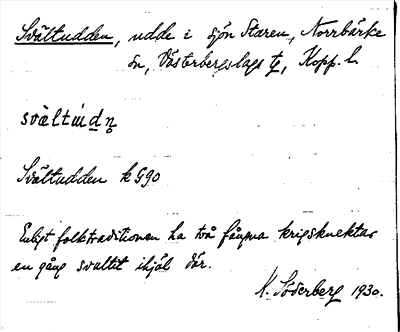 Svältudden, udde i sjön Staren, Norrbärke
sn, Västerbergslags tg, Kopp. l.
svältúdn̥
Svältudden k G90
Enligt folktraditionen ha två fångna krigsknektar
en gång svultit ihjäl där.
N. Söderberg 1930.